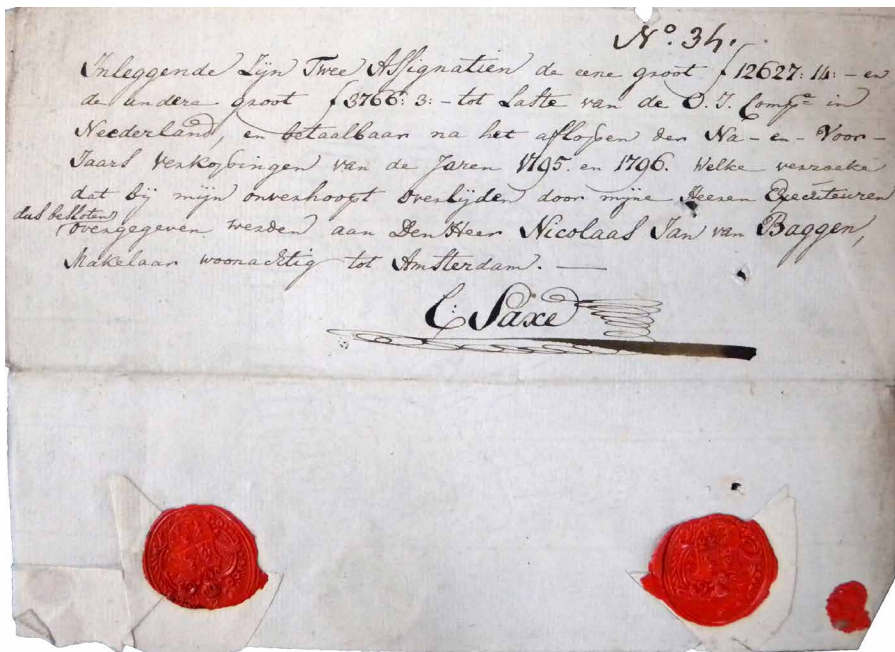 No. 34.
Inleggende Zijn Twee Assignatien de eene groot ƒ12627: 14: - en
de andere groot ƒ3766: 3: - tot Laste van de O. I. Compe in
Neederland, en betaalbaar na het afloopen der Na - en - Voor -
Jaars verkoopingen van de Jaren 1795. en 1796. Welke verzoeke
dat bij mijn onverhoopt overlijden door mijne Heeren Executeuren
dus besloten
overgegeven werden aan Den Heer Nicolaas Jan van Baggen,
Makelaar woonachtig tot Amsterdam. —
C: Saxe